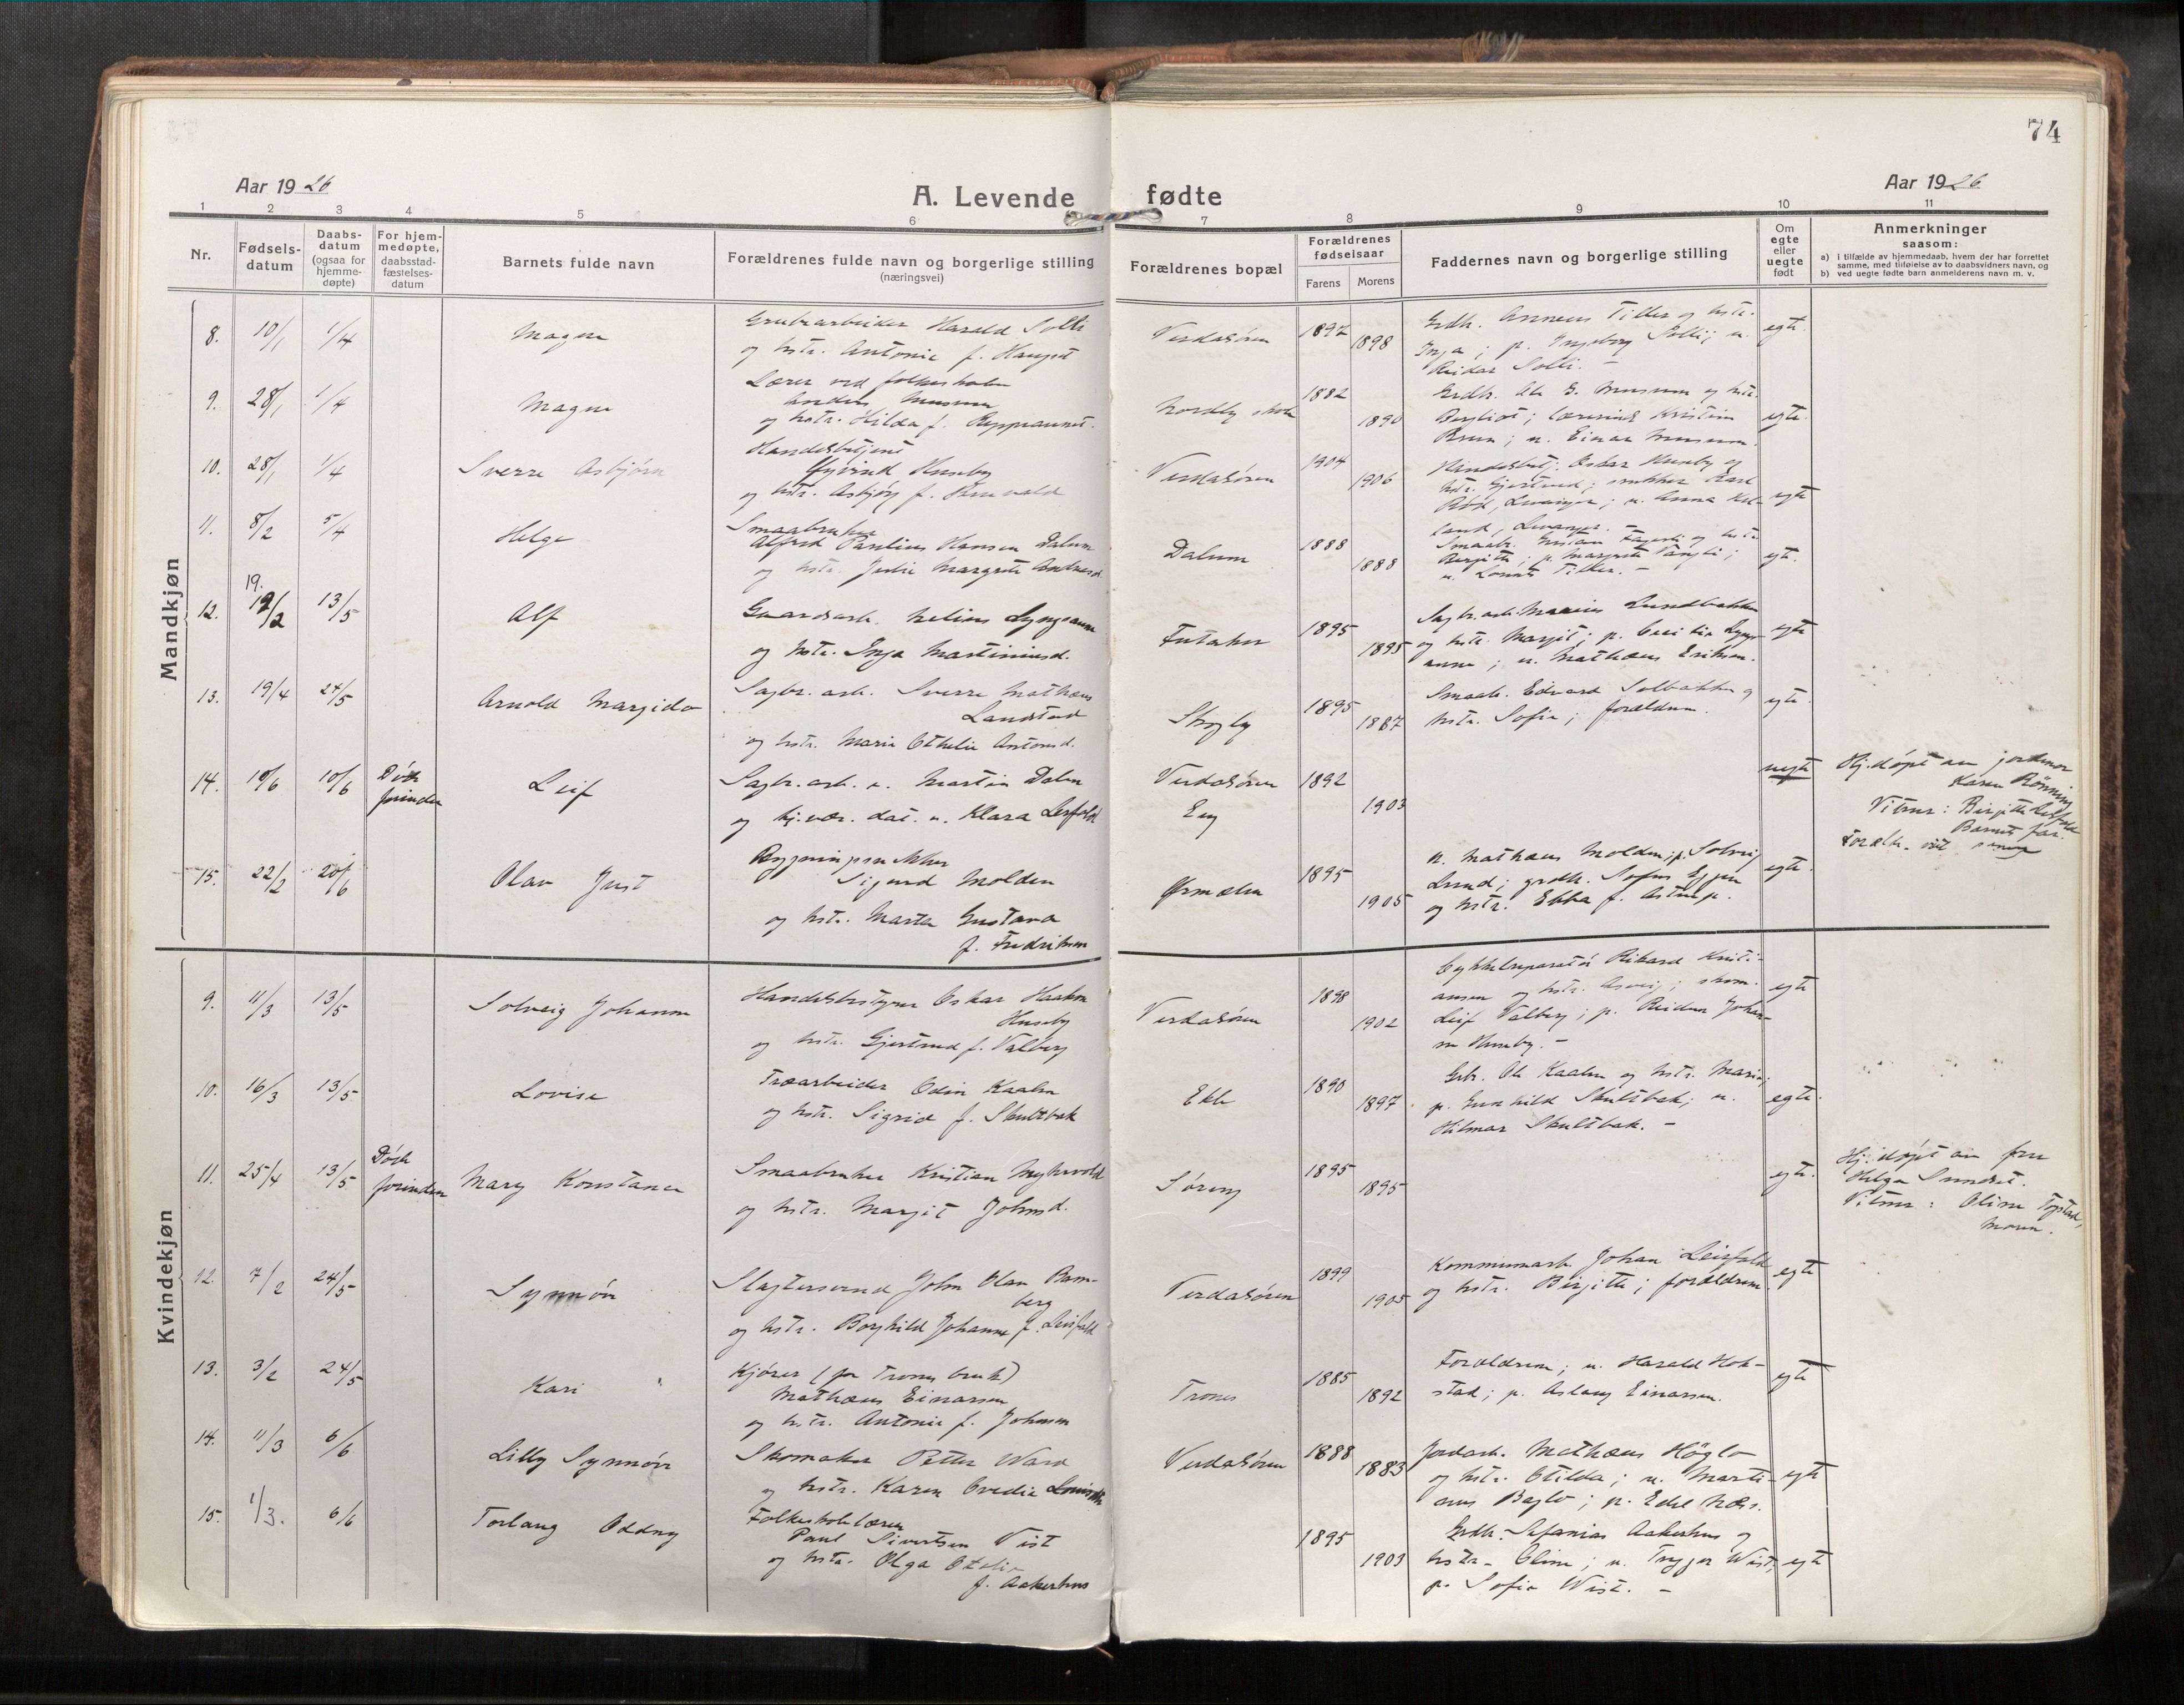 74
Aar 1926
A. Levende fødte
Aar 1926
1 2 3 4 5 6 7 8 9 10 11
Nr.
Fødsels-
datum
Daabs-
datum
(ogsaa for
hjemme-
døpte)
For hjem-
medøpte,
daabsstad-
fæstelses-
datum
Barnets fulde navn
Forældrenes fulde navn og borgerlige stilling
(næringsvei)
Forældrenes bopæl
Forældrenes
fødselsaar
Farens
Morens
Faddernes navn og borgerlige stilling
Om
egte
eller
uegte
født
Anmerkninger
saasom:
a) i tilfælde av hjemmedaab, hvem der har forrettet
samme, med tilføielse av to daabsvidners navn, og
b) ved uegte fødte barn anmelderens navn m. v.
Mandkjøn
8. 10/1 1/4 Magne
Grubearbeider Harald Solli
og hstr. Antonie f. Haugst
Verdasøren 1897 1898
Grdb. Anneus Tiller og hstr.
Inga; p. Ingeborg Solli; u.
Reidar Solli. -
egte.
9. 28/1 1/4 Magne
Lærer ved folkeskolen
Anders Musum
og hstr. Hilda f. Reppeaunet.
Nordby skole 1882 1890
Grdb. Ole E. Musum og hstr.
Bergliot; lærerinde Kristine
Brun; u. Einar Musum.
egte.
10. 28/1 1/4 Sverre Asbjørn
Handelsbetjent
Øyvind Huseby
og hstr. Asbjørg f.
Verdasøren 1904 1906
Handelsbetj. Oskar Huseby og
hstr. Gjertrud; snekker Karl
Levanger; u. Anna
land, Levanger. -
egte
11. 8/2 5/4 Helge
Smaabruker
Alfred Paulius Hansen Dalum
og hstr. Julie Margrete Andreasd.
Dalum 1888 1888
Smaab. Kristian og hstr.
Bergitte; p. Margrete
u. Tiller. -
egte.
12. 19. 19/2 13/5 Alf
Gaardsarb. Nelius Lyngsaune
og hstr. Inga Martiniusd.
1895 1895
Sagbr. arb. Marius Lundbakken
og hstr. Margit; p. Lyngs-
aune; u. Mathæus Eriksen.
egte
13. 19/4 24/5 Arnold Margido
Sagbr. arb. Sverre Mathæus
Landstad
og hstr. Marie Othelie Antonsd.
Skogby 1895 1887
Smaab. Edvard Solbakken og
hstr. Sofie; forældrene.
egte.
14. 10/6 10/6 Døde
forinden Leif
Sagbr. arb. u. Martin Dalen
og hj.vær. dat. u. Klara Leisfald
Verdasøren
Eng
1892 1903
uegte
Hj.døpt av jordmor
Karen Rønning
Vitner: Birgitte Leisfald
Barnets far.
Foræld. vilt
15. 22/2 20/6 Olav Just
Bygningssnekker
Sigurd Molden
og hstr. Marta Gustava
f. Fredriksen
Ørmelen 1895 1905
u. Mathæus Molden; p. Solveig
Lund; grdb. Sofus Eggen
og hstr. Ebba f. Astrup.
egte.
Kvindekjøn
9. 11/3 13/5 Solveig Johanne
Handelsbestyrer Oskar Haakon
Huseby
og hstr. Gjertrud f. Valberg
Verdasøren 1898 1902
Cykkelreparatør Rikard Kristi-
ansen og hstr. Asveig; skom.
Leif Valberg; p. Reidun Johan-
ne Huseby. -
egte
10. 16/3 13/5 Lovise
Træarbeider Odin Kaalen
og hstr. Sigrid f. Skultbak
Ekle 1890 1897
Grb. Ole Kaalen og hstr. Marie;
p. Gunhild Skultbak; u.
Hilmar Skultbak. -
egte.
11. 25/4 13/5 Døde
forinden Mary Konstance
Smaabruker Kristian Myhrvold
og hstr. Margit Johnsd.
Søreng 1895 1895
egte.
Hj. døpt av fru
Helga Sundset.
Vitner: Oline Topstad,
moren.
12. 7/2 24/5 Synnøve
Slagtersvend John Olav Bam-
berg
og hstr. Borghild Johanne f. Leisfald
Verdasøren 1899 1905
Kommunearb. Johan Leisfald
og hstr. Birgitte; forældrene.
egte
13. 3/2 24/5 Kari
Kjører (paa Trones bruk)
Mathæus Einarsen
og hstr. Antonie f. Johnsen
Trones 1885 1892
Forældrene; u. Harald Hok-
stad; p. Aslaug Einarsen.
egte
14. 11/3 6/6 Lilly Synnøve
Skomaker Petter Ward
og hstr. Karen Ovedie
Verdasøren 1888 1883
Jordarb. Mathæus Høglo
og hstr. Otilda; u. Marti-
nus Baglo; p. Edel Næss.
egte
15. 1/3. 6/6 Torlaug Oddny
Folkeskolelærer
Paul Sivertsen Vist
og hstr. Olga Otelie
f. Aakerhus
1895 1903
Grdb. Sefanias Aakerhus og
hstr. Oline; u. Trygve Wist;
p. Sofie Wist. -
egte